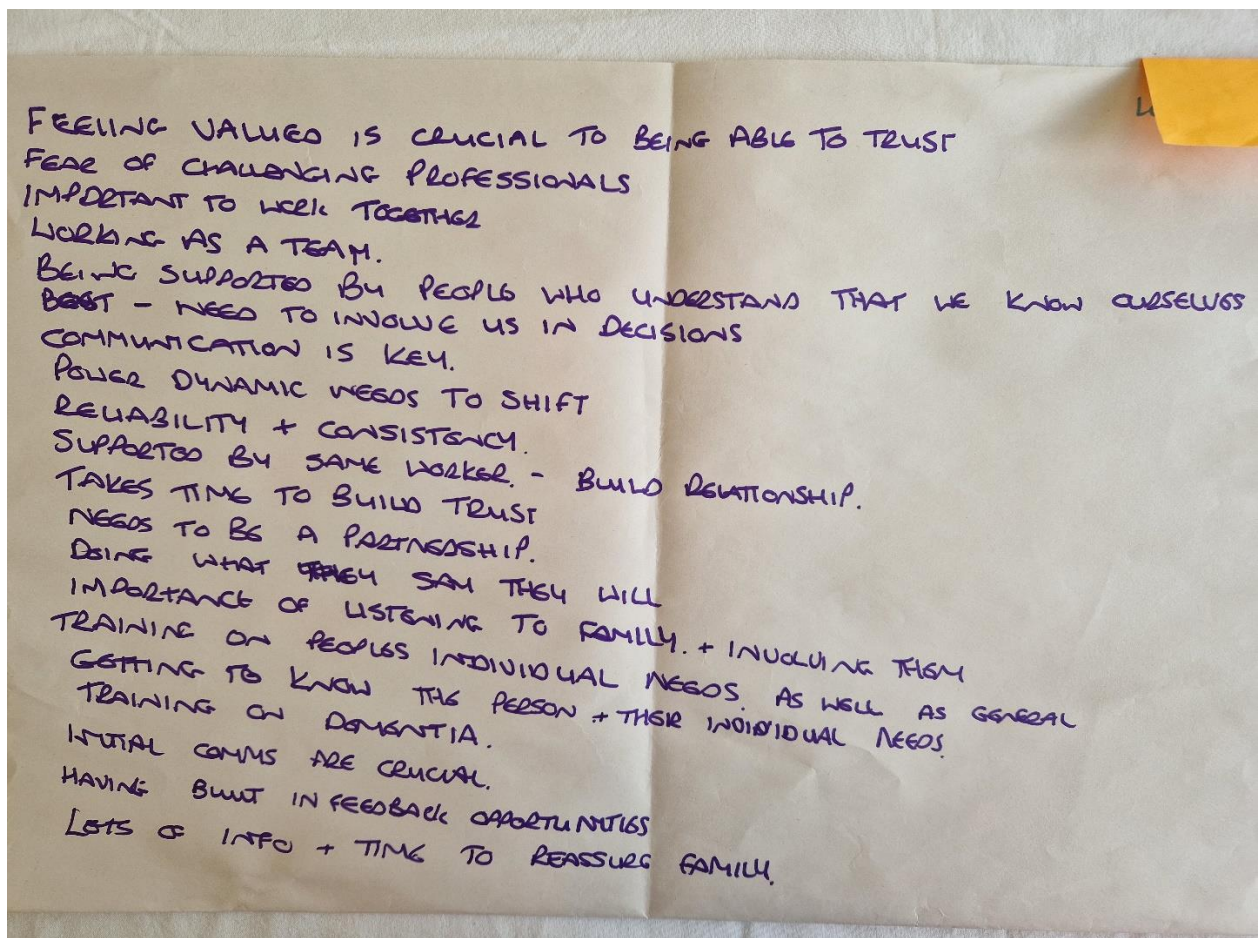 FEELING VALUED IS CRUCIAL TO BEING ABLE TO TRUST
FEAR OF CHALLENGING PROFESSIONALS
IMPORTANT TO WORK TOGETHER
WORKING AS A TEAM.
BEING SUPPORTED BY PEOPLE WHO UNDERSTAND THAT WE KNOW OURSELVES
BEST - NEED TO INVOLVE US IN DECISIONS
COMMUNICATION IS KEY.
POWER DYNAMIC NEEDS TO SHIFT
RELIABILITY + CONSISTENCY.
SUPPORTED BY SAME WORKER. - BUILD RELATIONSHIP.
TAKES TIME TO BUILD TRUST
NEEDS TO BE A PARTNERSHIP.
DOING WHAT THEY SAY THEY WILL
IMPORTANCE OF LISTENING TO FAMILY. + INVOLVING THEM
TRAINING ON PEOPLES INDIVIDUAL NEEDS. AS WELL AS GENERAL
GETTING TO KNOW THE PERSON + THEIR INDIVIDUAL NEEDS.
TRAINING ON DEMENTIA.
INITIAL COMMS ARE CRUCIAL.
HAVING BUILT IN FEEDBACK OPPORTUNITIES
LOTS OF INFO + TIME TO REASSURE FAMILY.